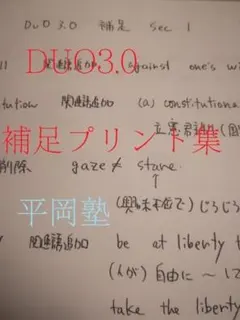 DUO 3.0 補足 Sec 1
DUO3.0
関連語追加 against one's wi
tution 関連語追加 (a) constitutiona
立憲君
補足プリント集
削除 gaze ≠ stare.
↑
平岡塾
(興味本位で) じろじろ
関連語追加 be at liberty t
(人が) 自由に 〜し
take the libert